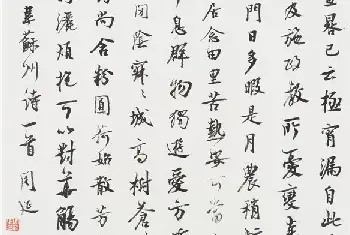 晷已云極宵漏自此
及施政教所憂變炎
門日多暇是月農稍
居念田里苦熱安可當
息群物獨遊愛方
閉陰寂〻城高樹蒼
尚含粉圓荷始散芳
灑煩抱可以對華觴
韋蘇州詩一首 周延